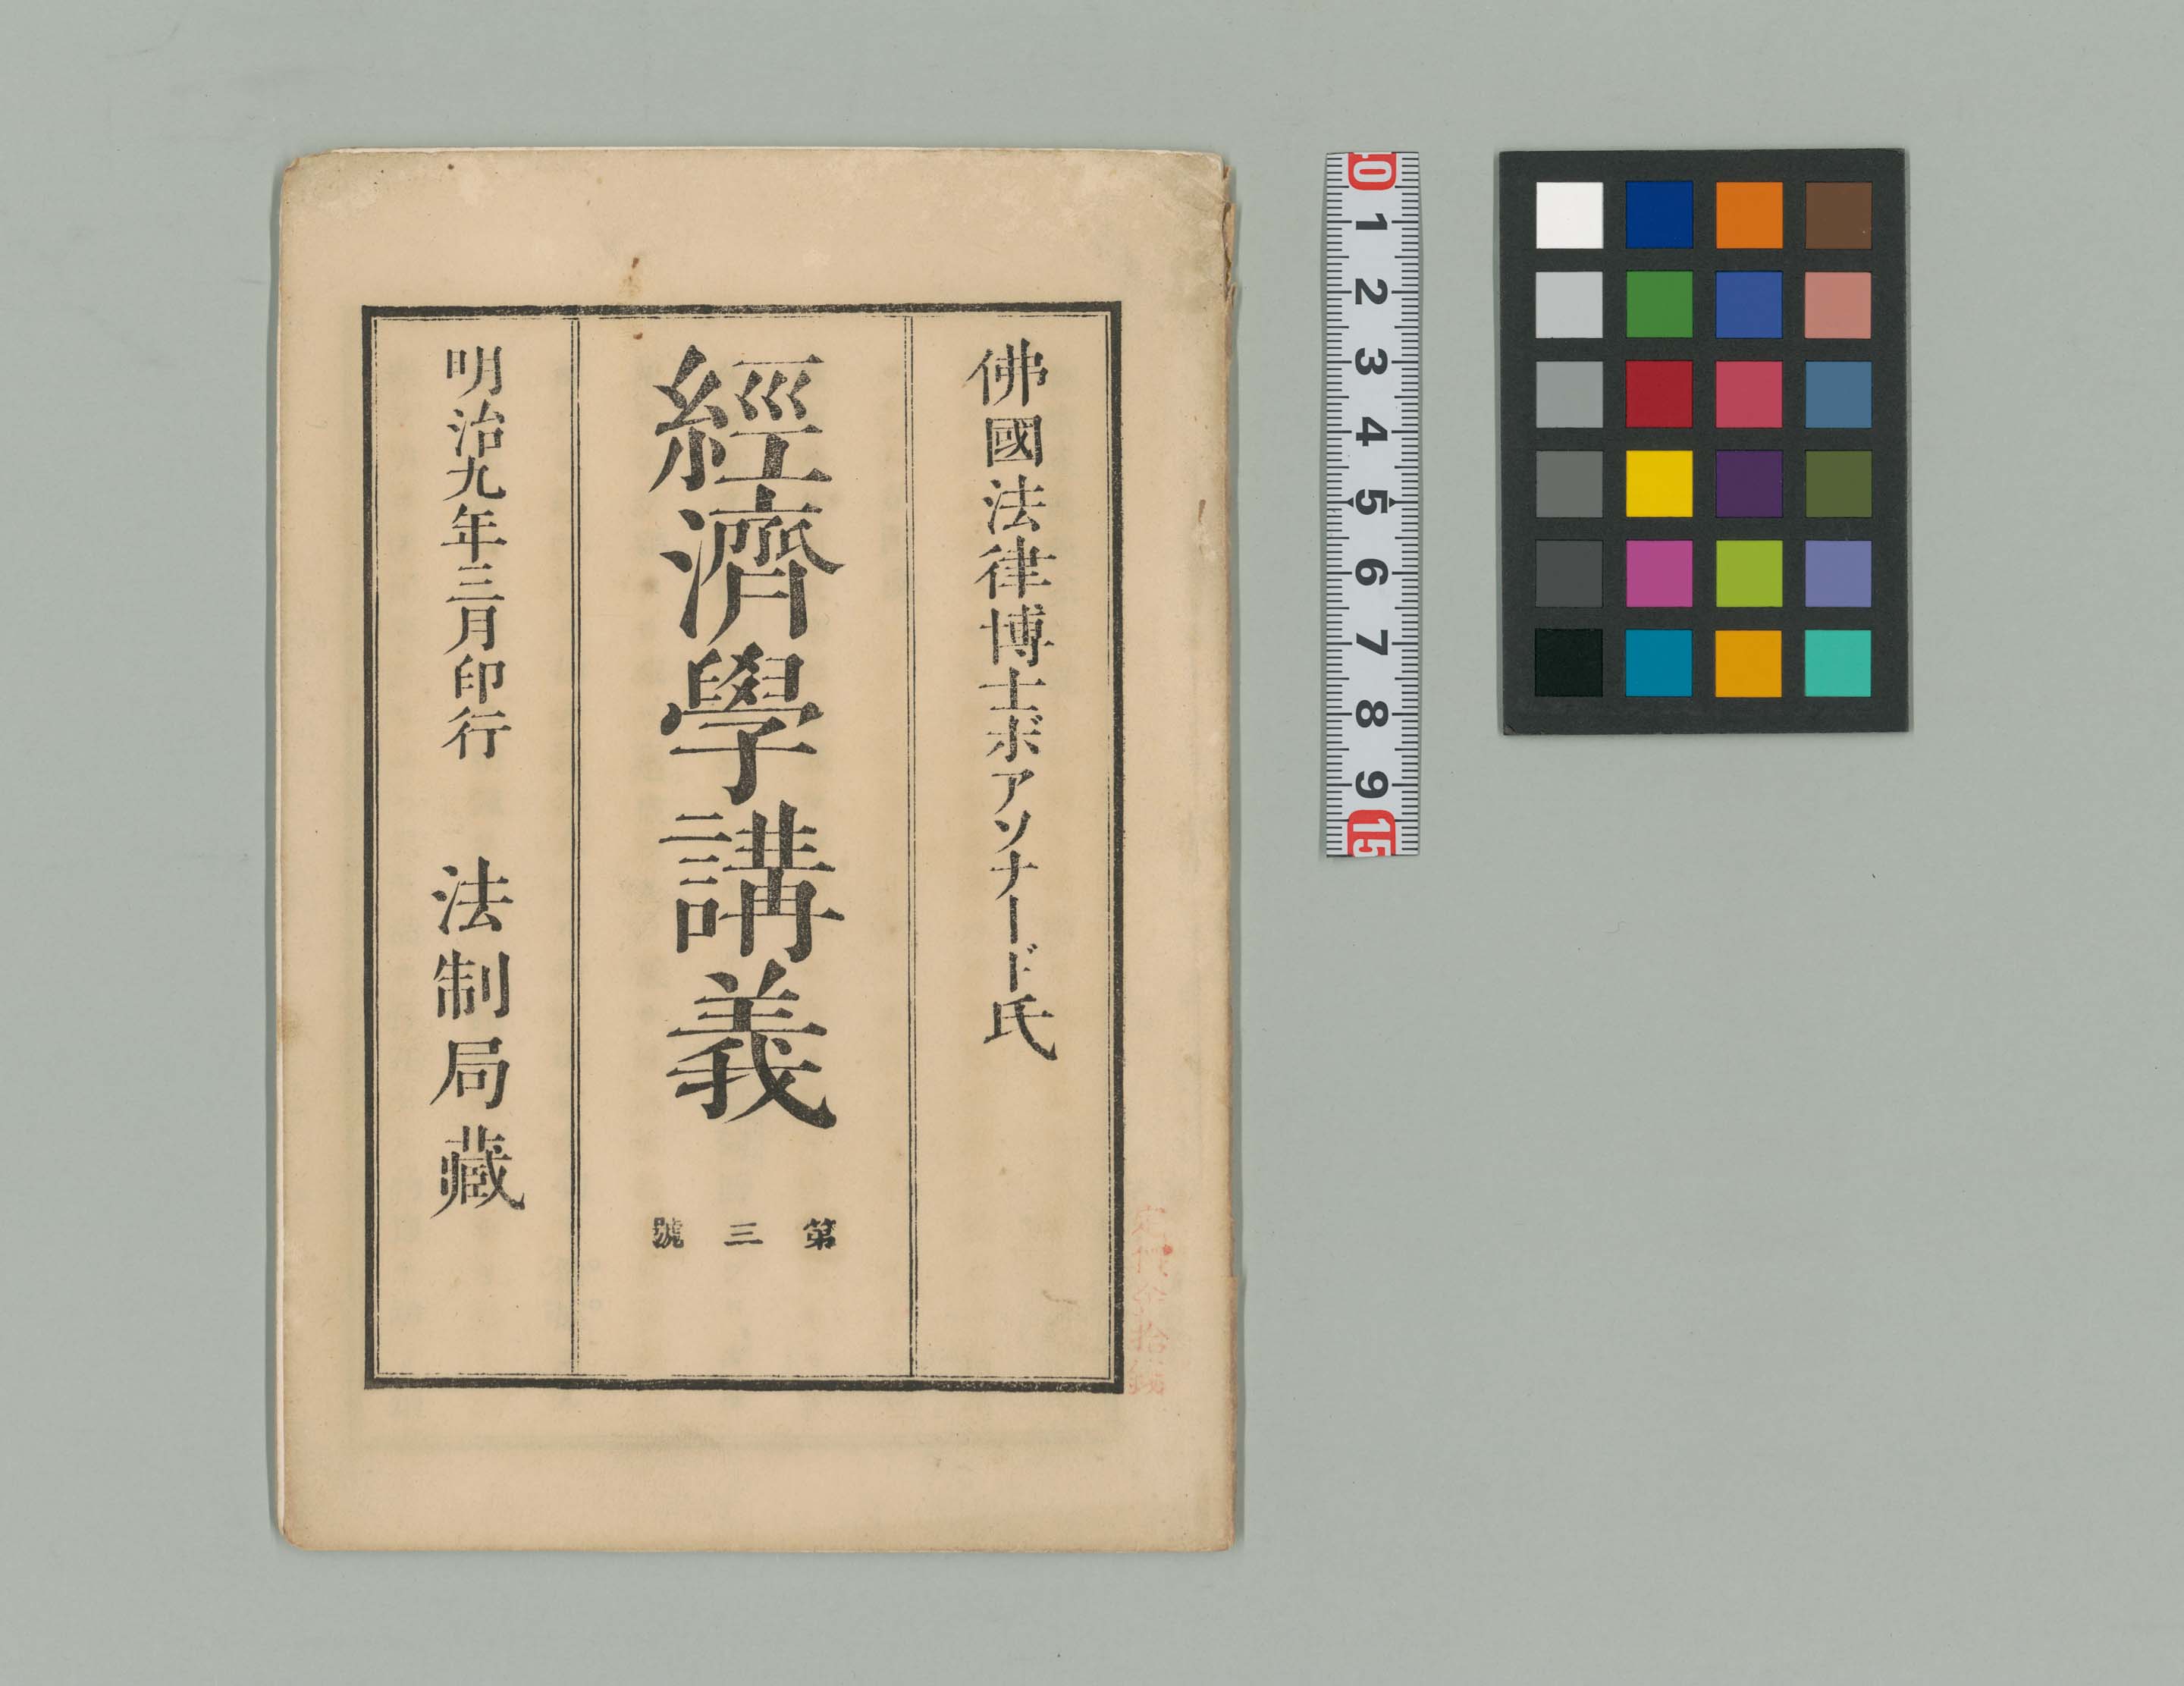 佛國法律博士ボアソナード氏
經濟學講義
第三號
明治九年三月印行 法制局藏
0 1 2 3 4 5 6 7 8 9 15